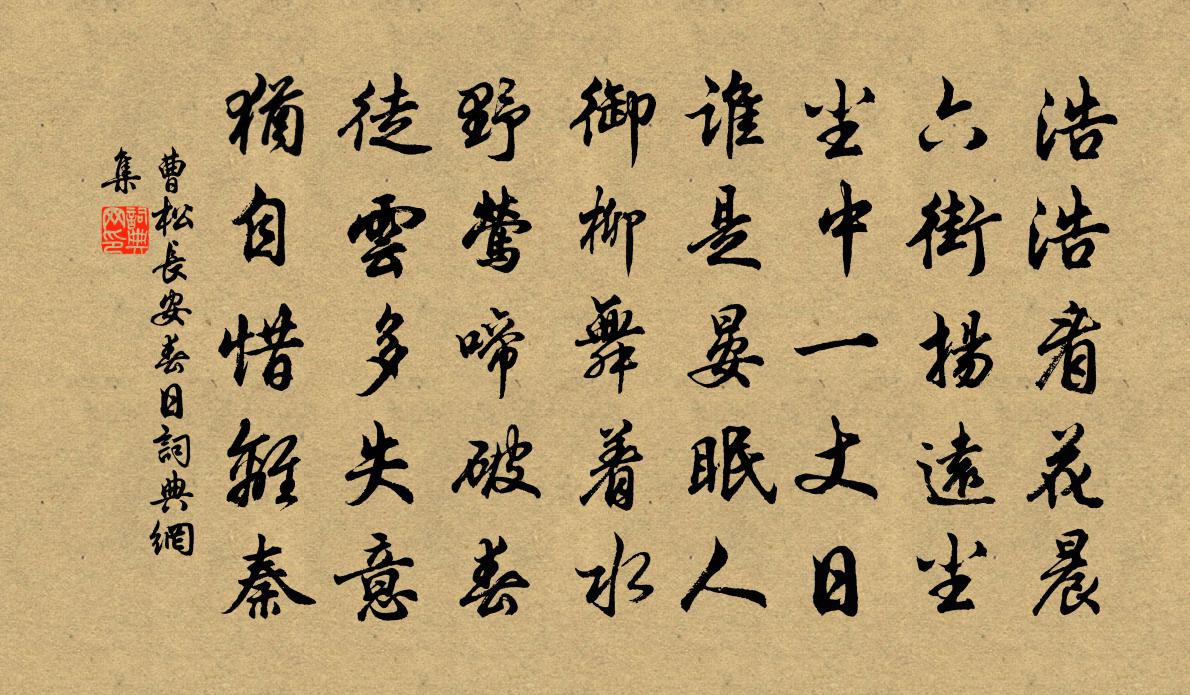 浩浩看花晨
六街揚遠尘
尘中一丈日
谁是晏眠人
御柳舞着水
野鶯啼破春
徒雲多失意
猶自惜離秦
曹松長安春日詞典網
集
詞典
网印